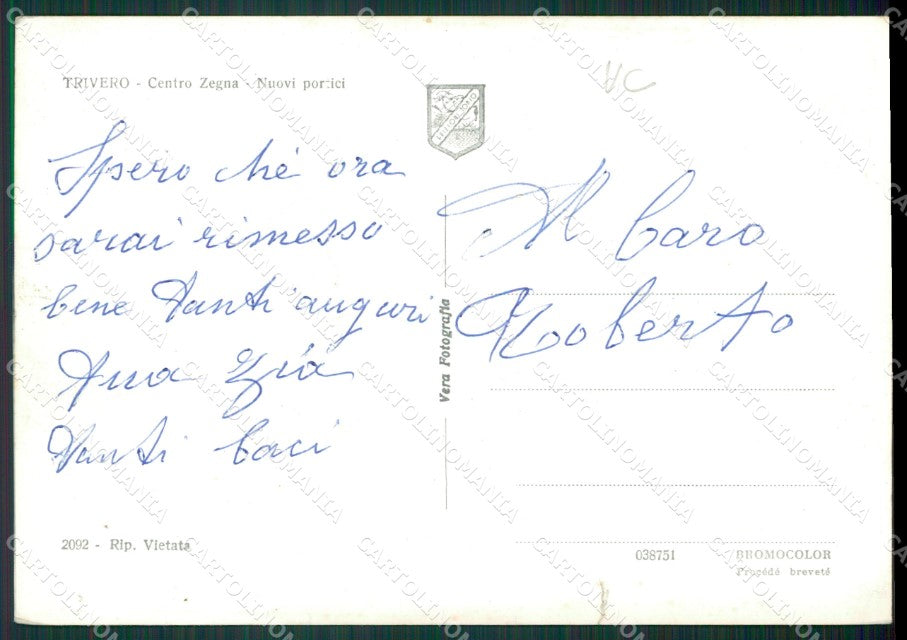 TRIVERO - Centro Zegna - Nuovi portici
Spero chè ora
sarai rimesso
bene Tanti auguri
Tua Zia
Tanti baci
Al Caro
Roberto
Vera Fotografia
2092 - Rip. Vietata
038751
BROMOCOLOR
Procédé breveté
CARTOLINOMANIA